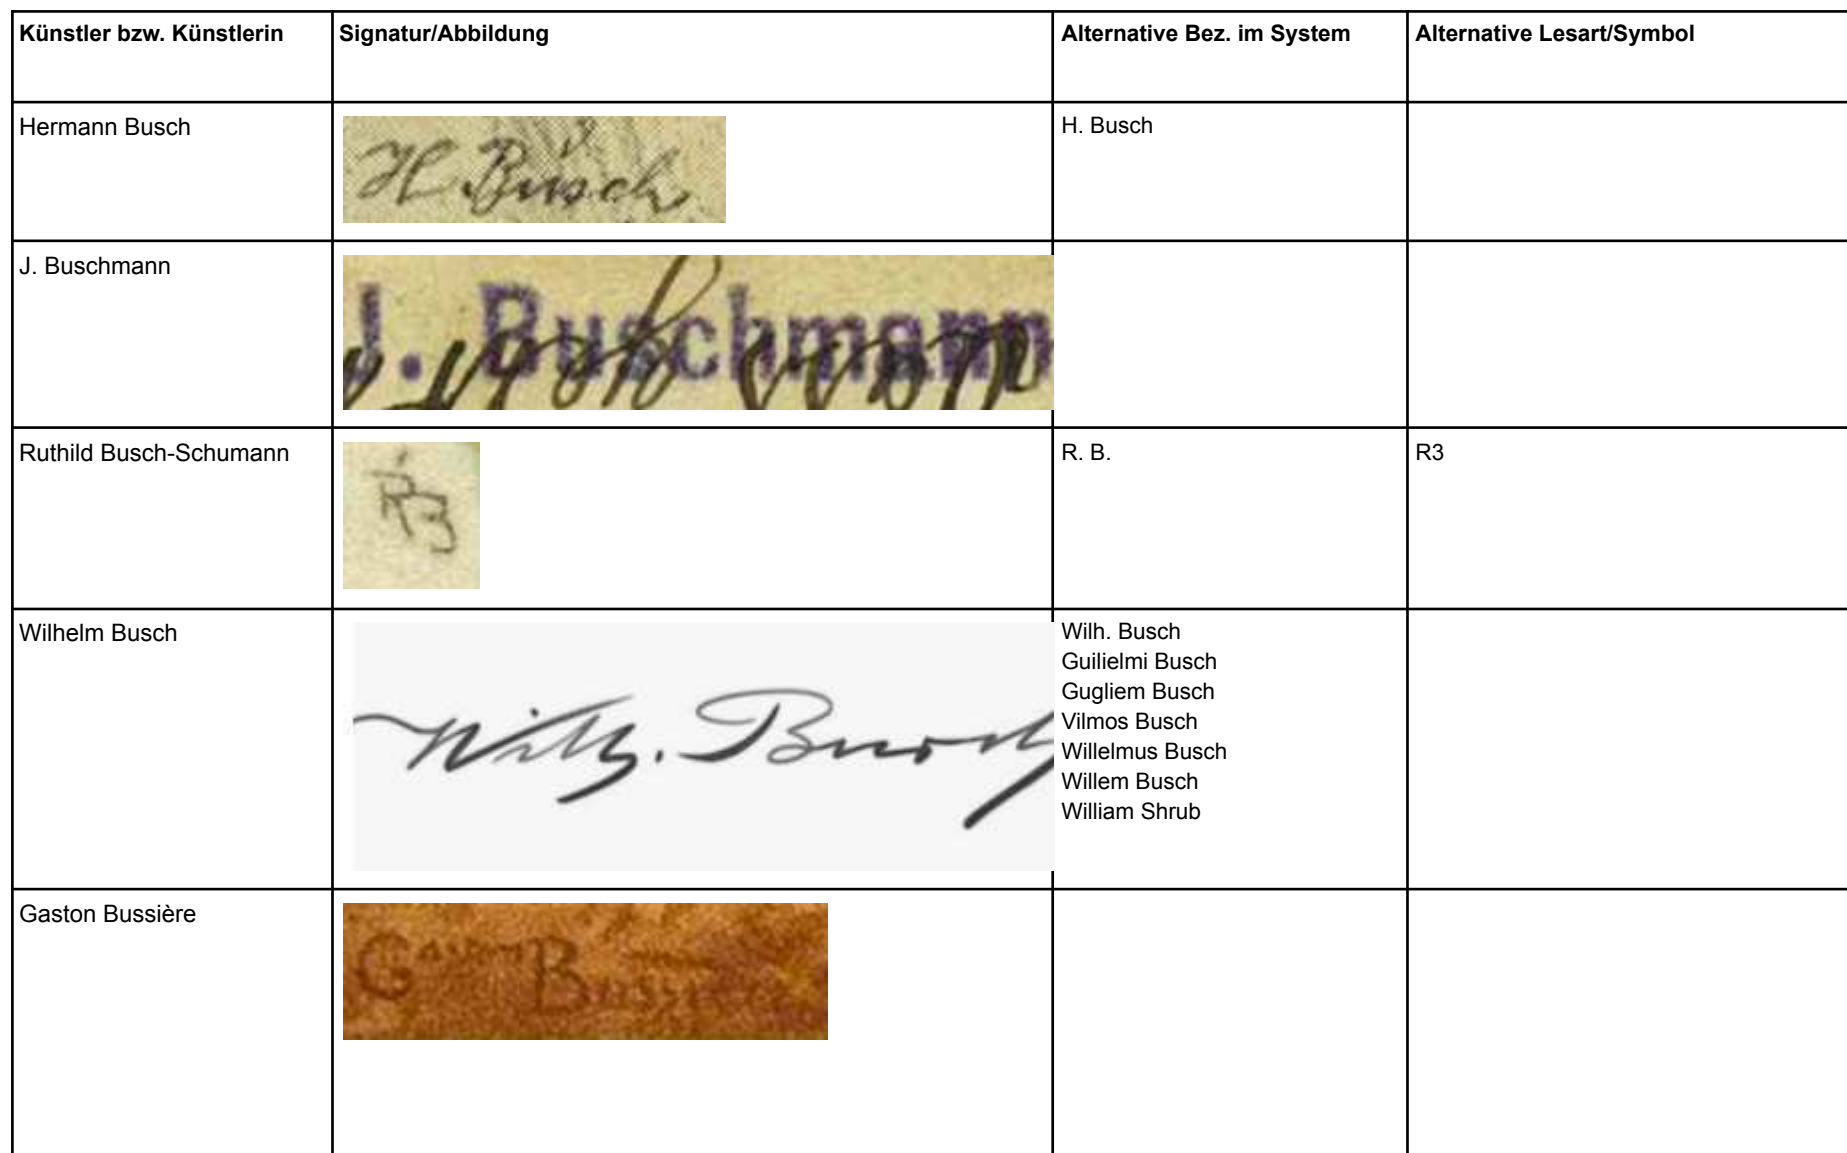 Künstler bzw. Künstlerin Signatur/Abbildung Alternative Bez. im System Alternative Lesart/Symbol
Hermann Busch H. Busch H. Busch
J. Buschmann J. Buschmann
Ruthild Busch-Schumann RB R. B. R3
Wilhelm Busch Wilh. Busch Wilh. Busch
Guilielmi Busch
Gugliem Busch
Vilmos Busch
Willelmus Busch
Willem Busch
William Shrub
Gaston Bussière Gaston Bussière